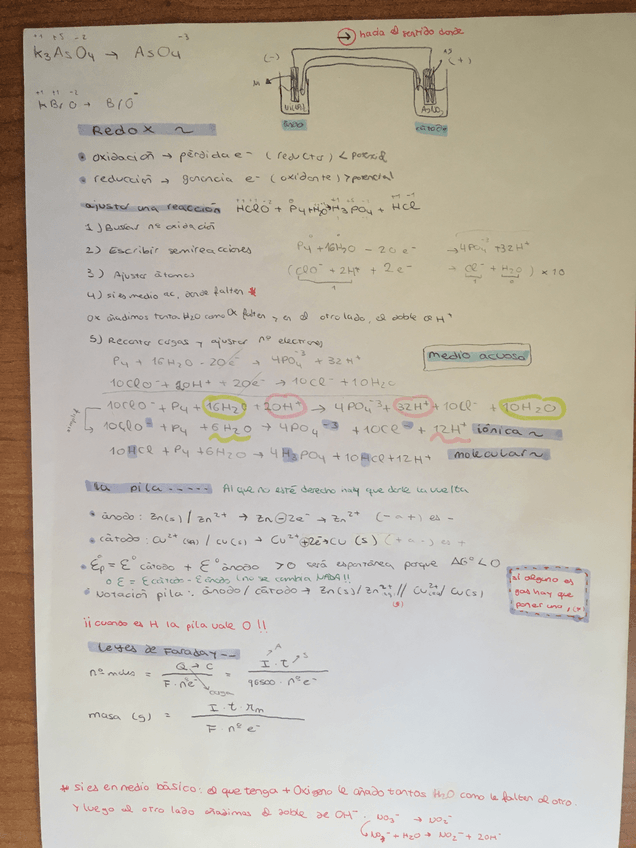 +1 +5 -2 -3
K₃AsO₄ → AsO₄
→ hacia el sentido donde
(-) (+)
+1 +1 -2
KBrO → BrO⁻
Redox ~
• oxidación → pérdida e⁻ (reductor) < potencial
• reducción → ganancia e⁻ (oxidante) > potencial
ajustar una reacción HClO + P₄ + H₂O → H₃PO₄ + HCl
1) Buscar nº oxidación
2) Escribir semireacciones P₄ + 16H₂O − 20e⁻ → 4PO₄⁻³ + 32H⁺
3) Ajustar átomos (ClO⁻ + 2H⁺ + 2e⁻ → Cl⁻ + H₂O) × 10
4) si es medio ac, donde falten *
Ox añadimos tanta H₂O como Ox falten, y en el otro lado, el doble de H⁺
5) Recontar cargas y ajustar nº electrones
medio acuoso
P₄ + 16H₂O − 20e⁻ → 4PO₄⁻³ + 32H⁺
10ClO⁻ + 20H⁺ + 20e⁻ → 10Cl⁻ + 10H₂O
10ClO⁻ + P₄ + 16H₂O + 20H⁺ → 4PO₄⁻³ + 32H⁺ + 10Cl⁻ + 10H₂O
10ClO⁻ + P₄ + 6H₂O → 4PO₄⁻³ + 10Cl⁻ + 12H⁺ iónica ~
10HCl + P₄ + 6H₂O → 4H₃PO₄ + 10HCl + 12H⁺ molecular ~
La pila ----- Al que no esté derecho hay que darle la vuelta
• ánodo: Zn(s) / Zn²⁺ → Zn − 2e⁻ → Zn²⁺ (- a +) es -
• cátodo: Cu²⁺ / Cu(s) → Cu²⁺ + 2e⁻ → Cu (s) (+ a -) es +
• Ɛ°p = Ɛ° cátodo + Ɛ° ánodo > 0 será espontánea porque ΔG° < 0
o Ɛ = Ɛ cátodo - Ɛ ánodo (no se cambia NADA!!
• Notación pila: ánodo / cátodo → Zn(s) / Zn²⁺ // Cu²⁺ / Cu(s)
(g)
si alguno es
gas hay que
poner una
¡¡ cuando es H la pila vale 0 !!
Leyes de Faraday --
A s
nº moles = Q → C / F · nº e⁻ = I · t / 96500 · nº e⁻
carga
masa (g) = I · t · rm / F · nº e⁻
* si es en medio básico: el que tenga + Oxígeno le añado tantas H₂O como le falten al otro
y luego al otro lado añadimos el doble de OH⁻. NO₃⁻ → NO₂⁻
NO₃⁻ + H₂O → NO₂⁻ + 2OH⁻